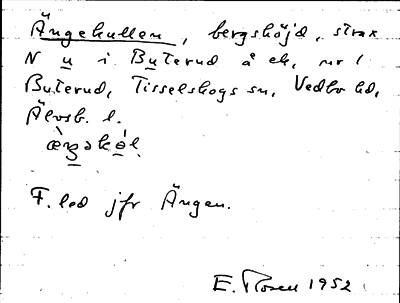 Ängekullen, bergshöjd, strax
N u i Buterud å ek. nr 1
Buterud, Tisselskogs sn, Vedbo hd,
Älvsb. l.
F. led jfr Ängen.
E. Rosen 1952